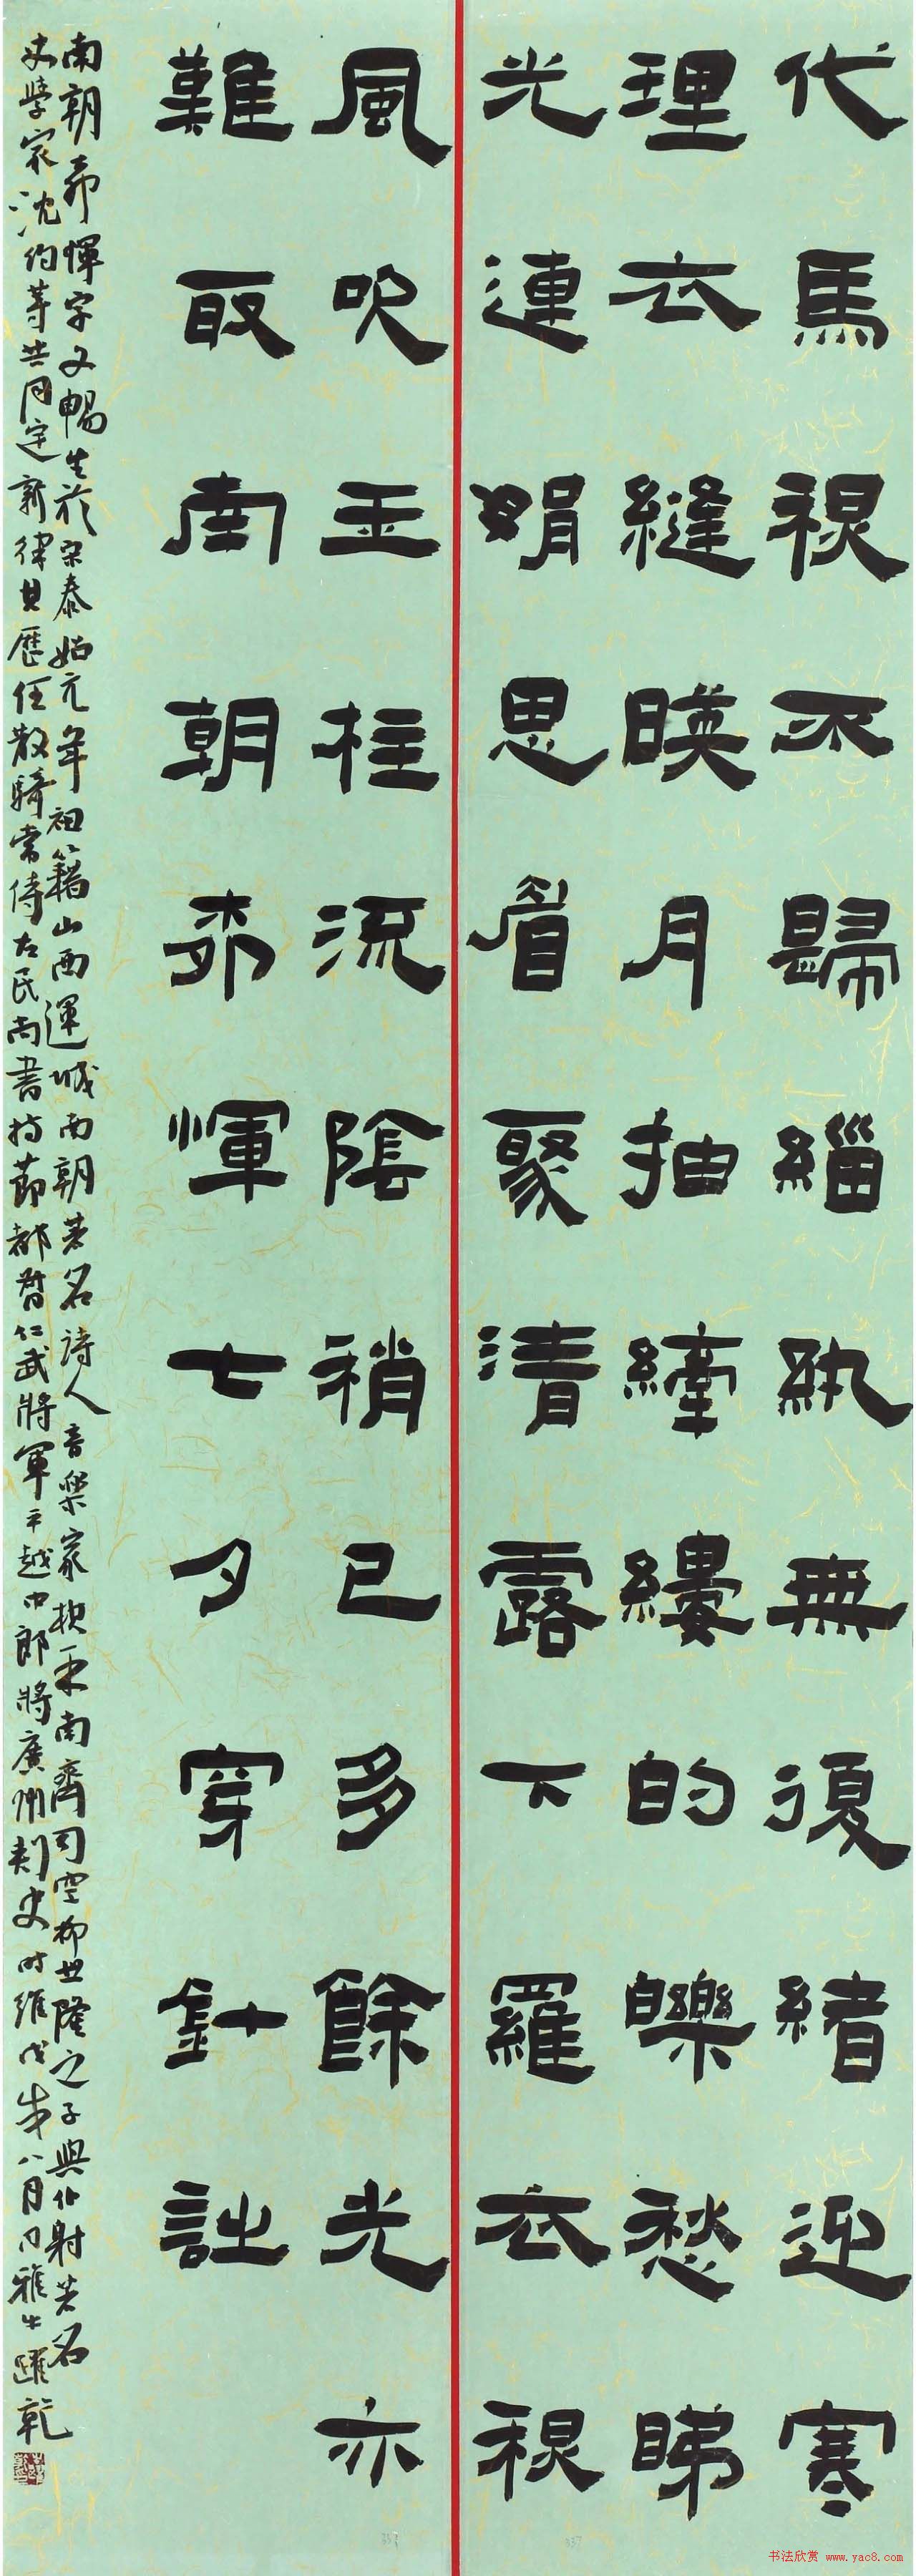 代馬秋不歸緇紈無復緒迎寒
理衣縫暎月抽縴縷的皪愁睇
光連娟思眉聚清露下羅衣秋
風吹玉柱流陰稍已多餘光亦
難取南朝柳惲七夕穿針詩
南朝柳惲字文暢生於宋泰始元年祖籍山西運城南朝著名詩人音樂家棋手南齊司空柳世隆之子與仆射著名
文學家沈約等共同定新律且歷任散騎常侍左民尚書持節都督仁武將軍平越中郎將廣州刺史時維戊戌八月同雅牛躍乾
书法欣赏 www.yac8.com